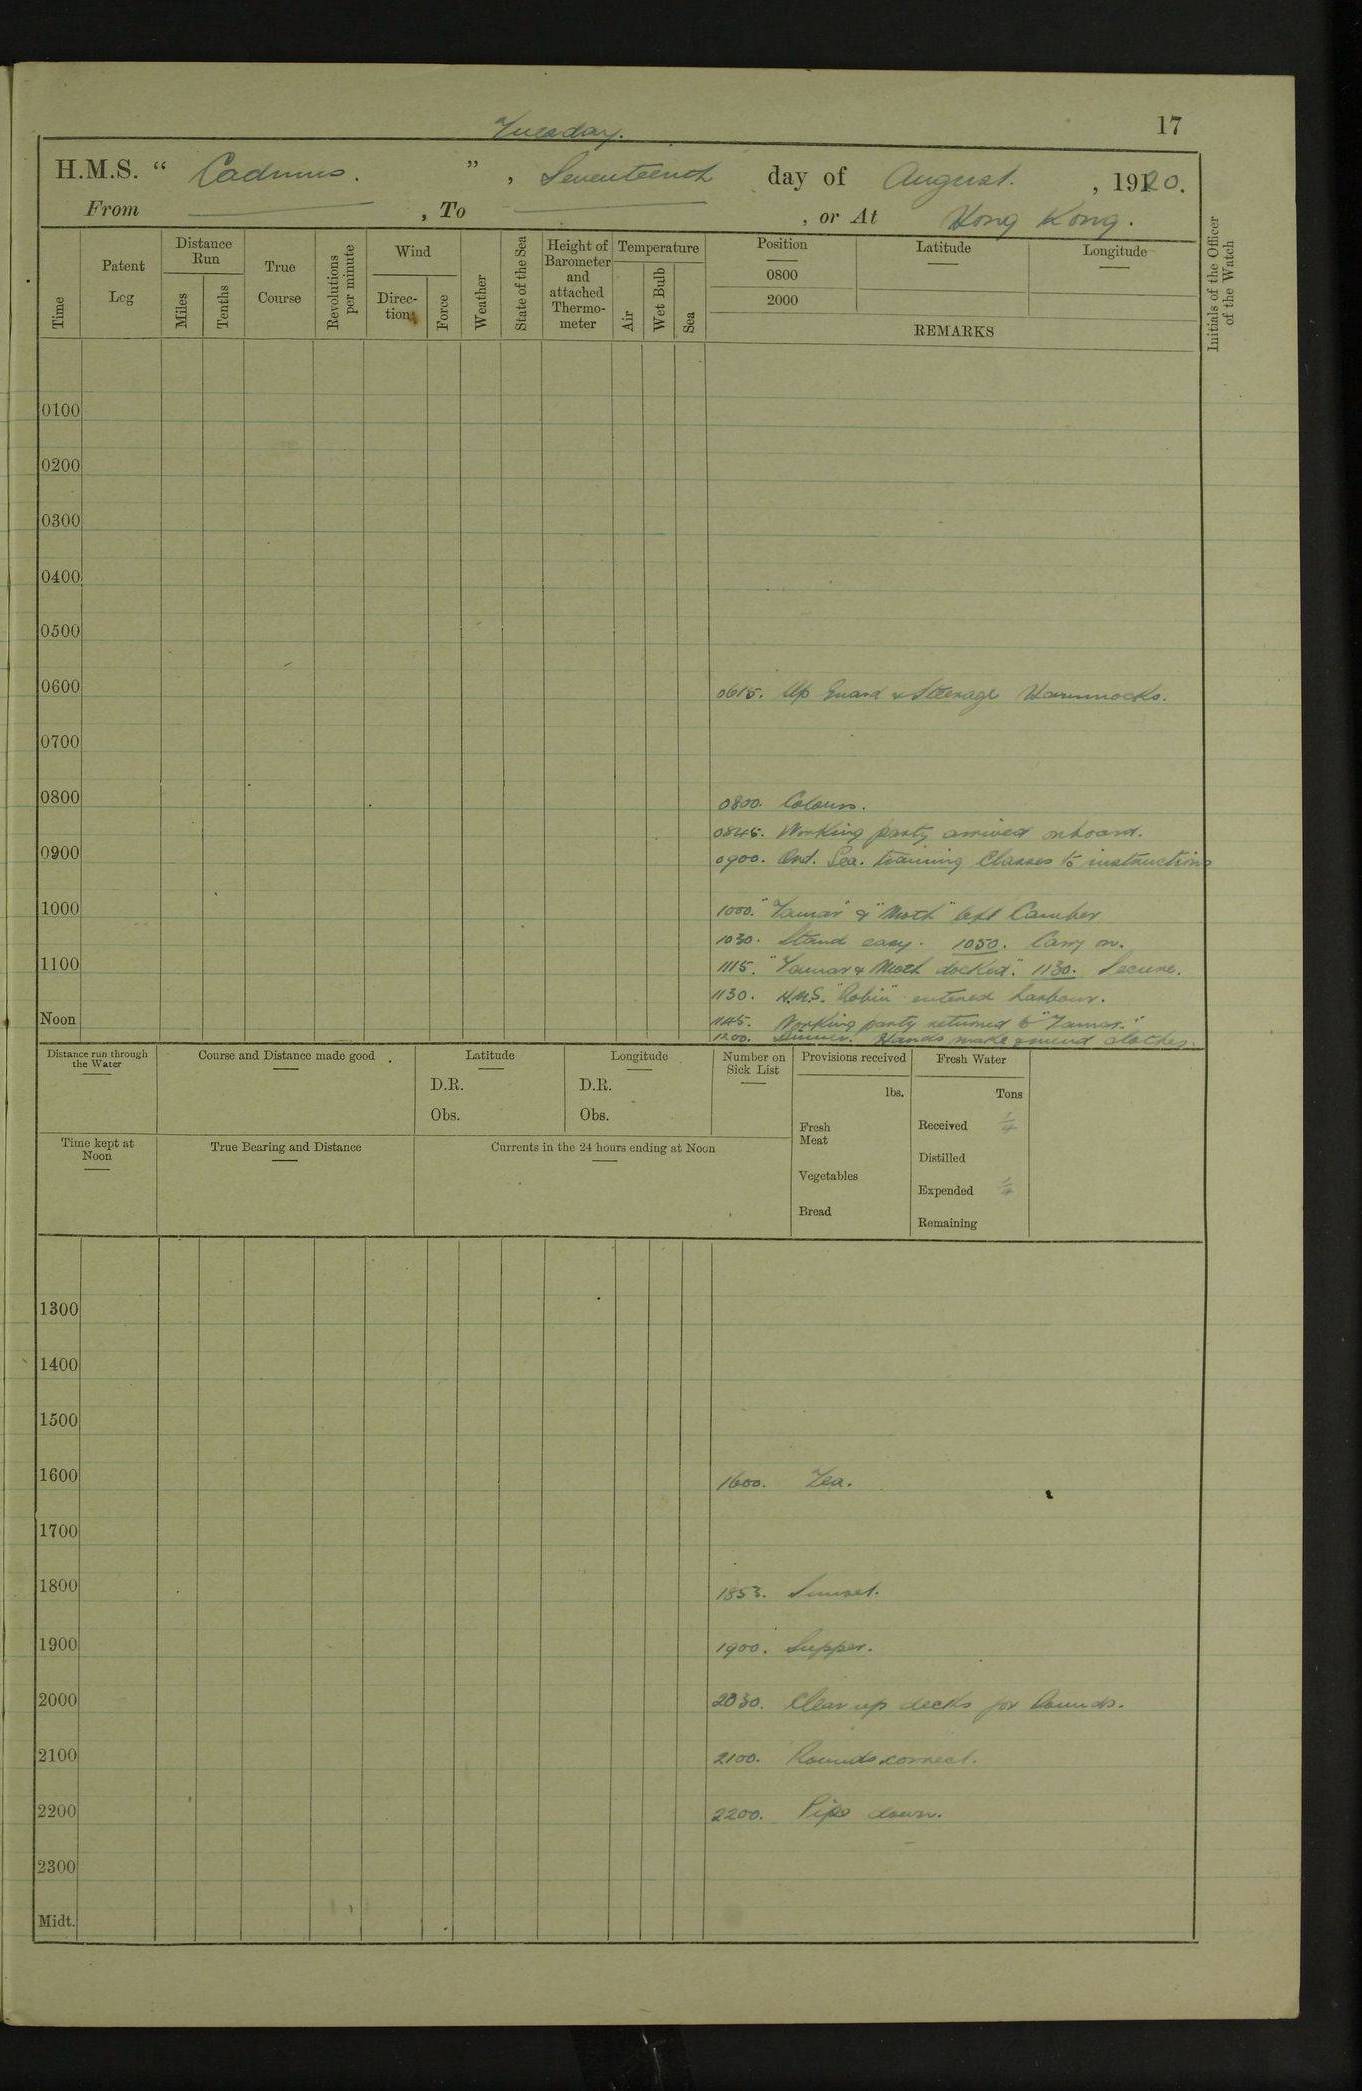 Tuesday.
17
H.M.S. “ Cadmus. ” , Seventeenth day of August. , 1920.
From , To , or At Hong Kong.
Time
Patent Log
Distance Run
Miles
Tenths
True Course
Revolutions per minute
Wind
Direction
Force
Weather
State of the Sea
Height of Barometer and attached Thermometer
Temperature
Air
Wet Bulb
Sea
Position
0800
2000
Latitude
Longitude
REMARKS
Initials of the Officer of the Watch
0100
0200
0300
0400
0500
0600
0615. Up Guard & Steerage Hammocks.
0700
0800
0800. Colours.
0845. Working party arrived onboard.
0900
0900. Ord. Sea. training Classes to instructions
1000
1000. "Tamar" & "Moth" left Camber
1030. Stand easy. 1050. Carry on.
1100
1115. "Tamar & Moth docked". 1130. Secure.
1130. H.M.S. "Robin" entered harbour.
Noon
1145. Working party returned to "Tamar."
1200. Dinner. Hands make & mend clothes.
Distance run through the Water
Course and Distance made good
Latitude
D.R.
Obs.
Longitude
D.R.
Obs.
Number on Sick List
Provisions received
lbs.
Fresh Meat
Vegetables
Bread
Fresh Water
Tons
Received
Distilled
Expended
Remaining
Time kept at Noon
True Bearing and Distance
Currents in the 24 hours ending at Noon
1300
1400
1500
1600
1600. Tea.
1700
1800
1853. Sunset.
1900
1900. Supper.
2000
2030. Clear up decks for Rounds.
2100
2100. Rounds correct.
2200
2200. Pipe down.
2300
Midt.